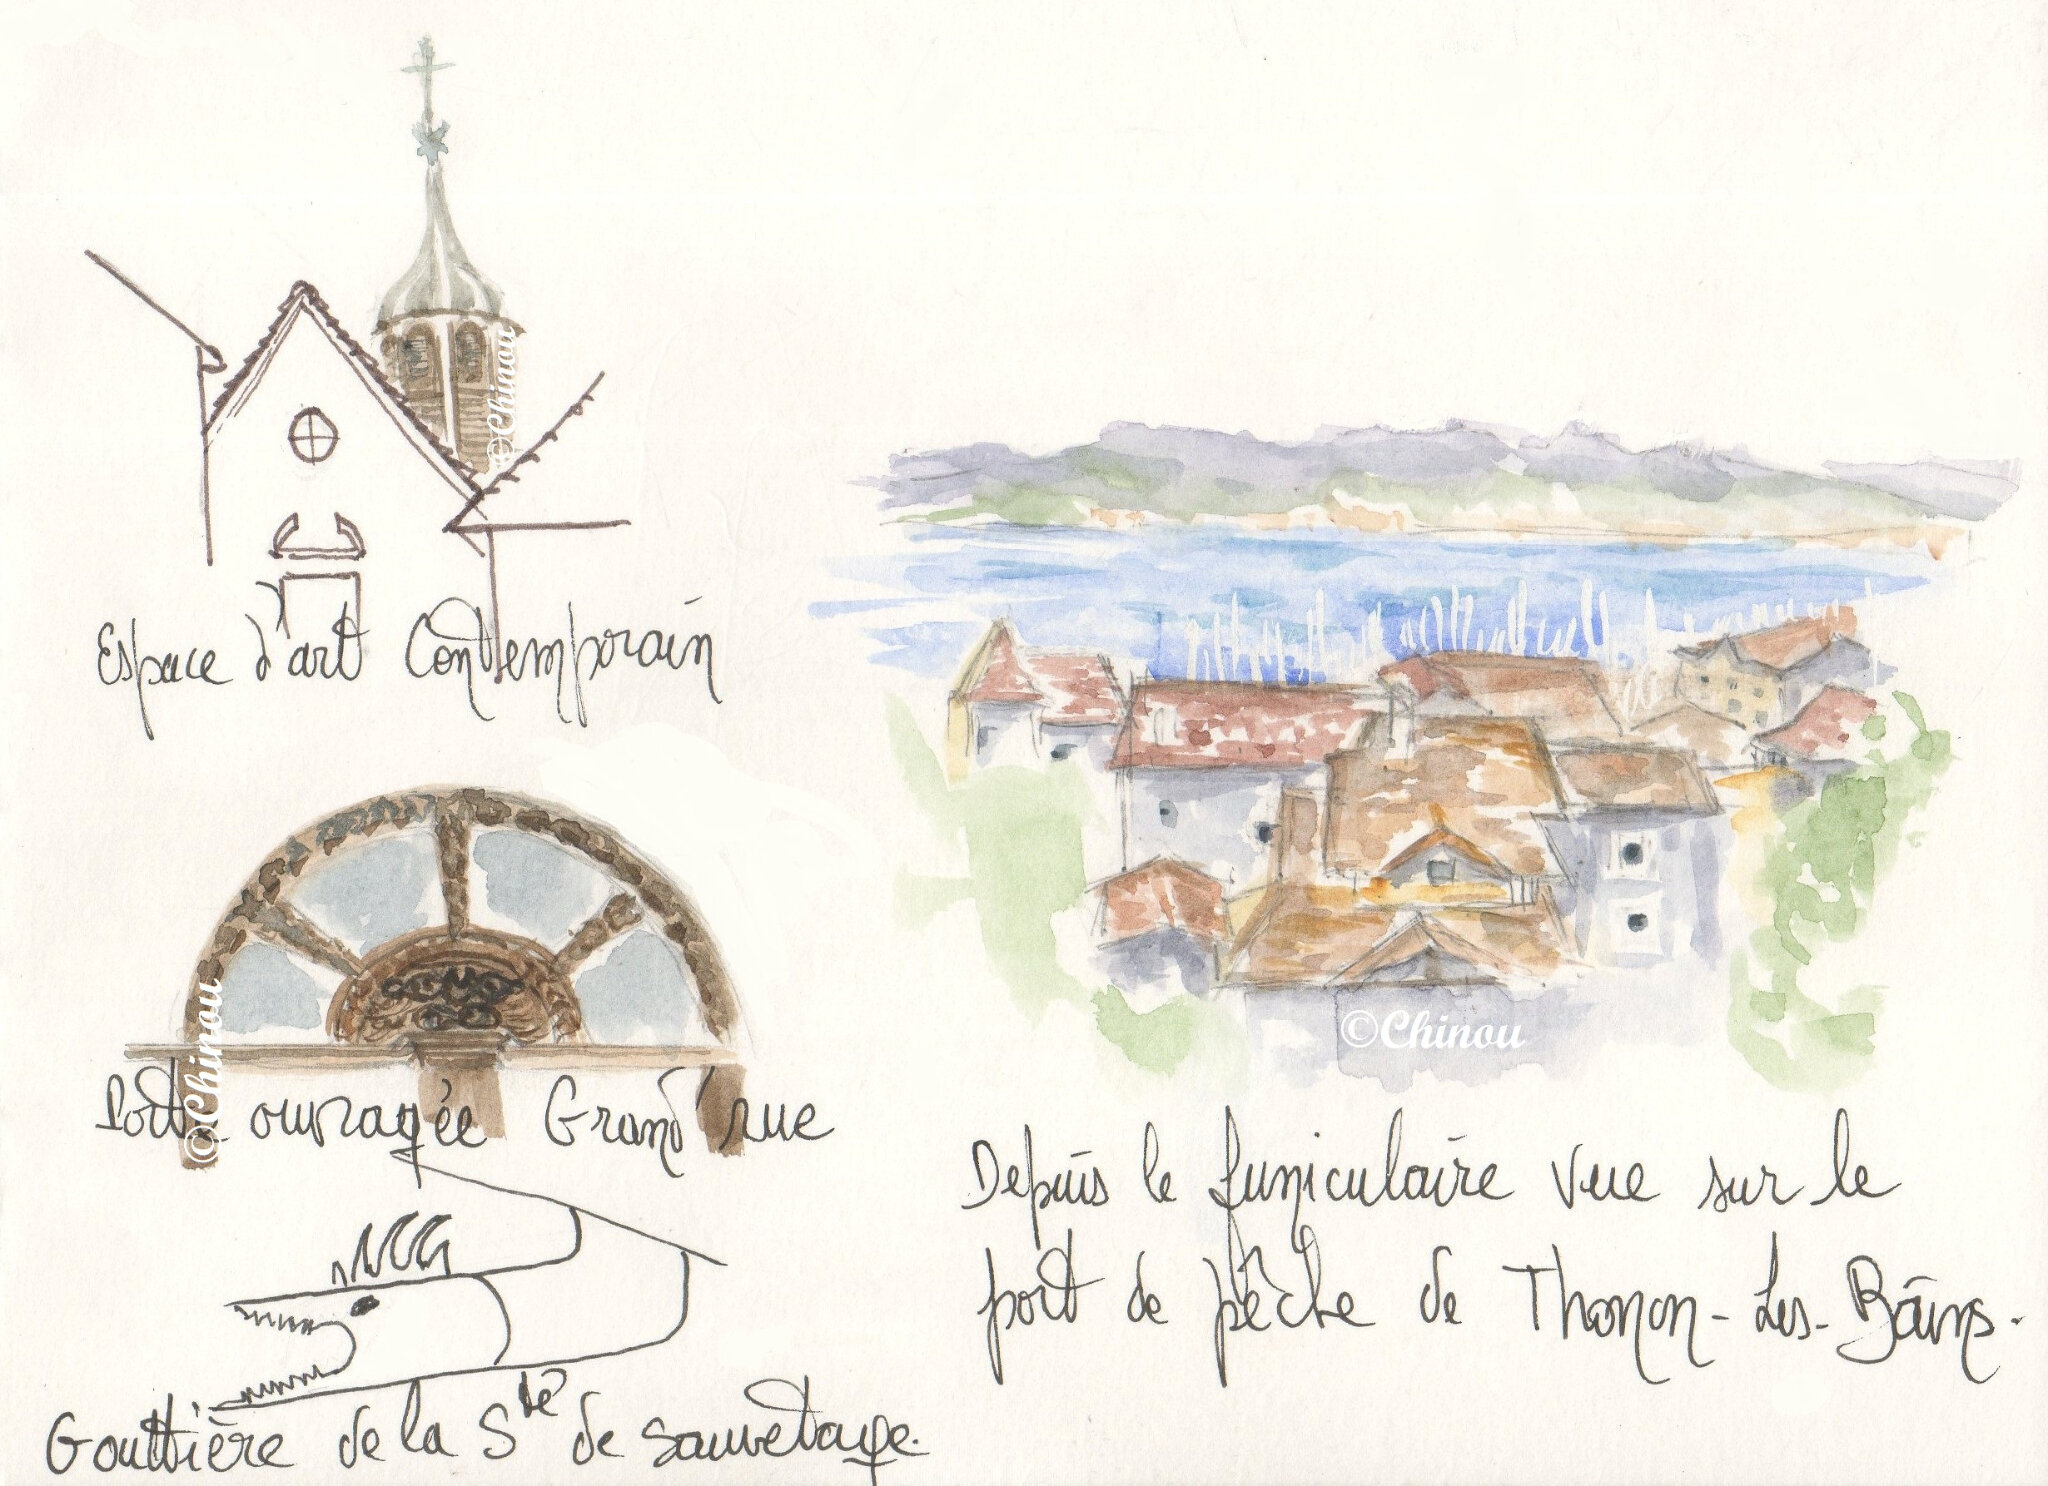 ©Chinou
Espace d'art Contemporain
©Chinou
Porte ouvragée Grand'rue
Gouttière de la Sté de Sauvetage.
©Chinou
Depuis le funiculaire vue sur le
port de pêche de Thonon-Les-Bains.